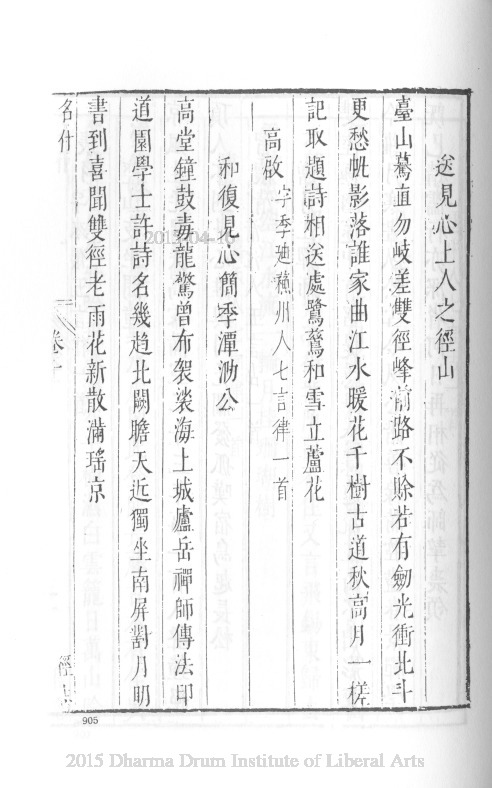 送見心上人之徑山
臺山驀直勿岐差雙徑峰前路不賒若有劒光衝北斗
更愁帆影落誰家曲江水暖花千樹古道秋高月一槎
記取題詩相送處鷺鷥和雪立蘆花
高啟字季廸蘓州人七言律一首
和復見心簡季潭泐公
高堂鐘鼓毒龍驚曾布袈裟海上城廬岳禪師傳法印
道園學士許詩名幾趨北闕瞻天近獨坐南屏對月明
書到喜聞雙徑老雨花新散滿瑤京
名什 卷十 徑山
905
2015 Dharma Drum Institute of Liberal Arts